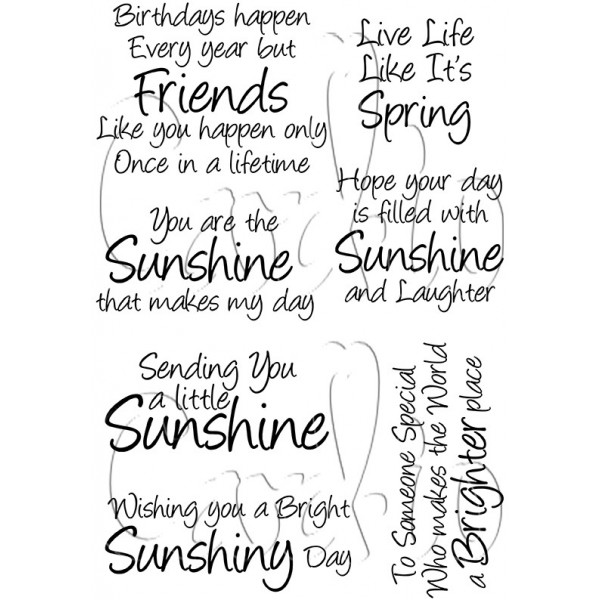 Birthdays happen
Every year but
Friends
Like you happen only
Once in a lifetime
Live Life
Like It's
Spring
You are the
Sunshine
that makes my day
Hope your day
is filled with
Sunshine
and Laughter
Sending You
a little
Sunshine
Wishing you a Bright
Sunshiny Day
To Someone Special
Who makes the World
a Brighter place